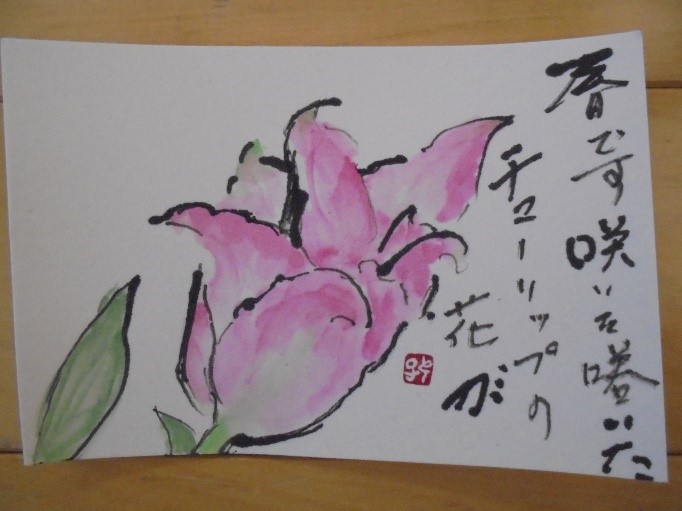 春です咲いた咲いた
チューリップの
花が